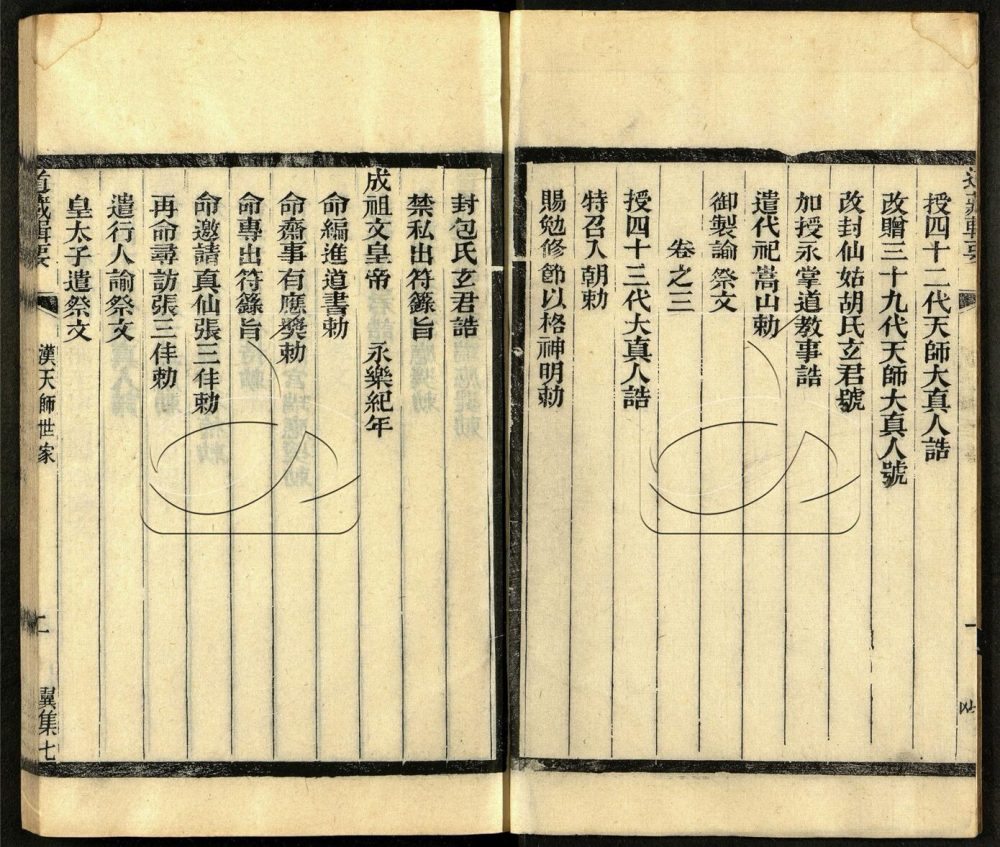 授四十二代天師大真人誥
改贈三十九代天師大真人號
改封仙姑胡氏玄君號
加授永掌道教事誥
遣代祀嵩山勅
御製諭祭文
卷之三
授四十三代大真人誥
特召入朝勅
賜勉修節以格神明勅
封包氏玄君誥
禁私出符籙旨
成祖文皇帝 永樂紀年
命編進道書勅
命齋事有應獎勅
命專出符籙旨
命邀請真仙張三仹勅
再命尋訪張三仹勅
遣行人諭祭文
皇太子遣祭文
道藏輯要 漢天師世家 二 翼集七